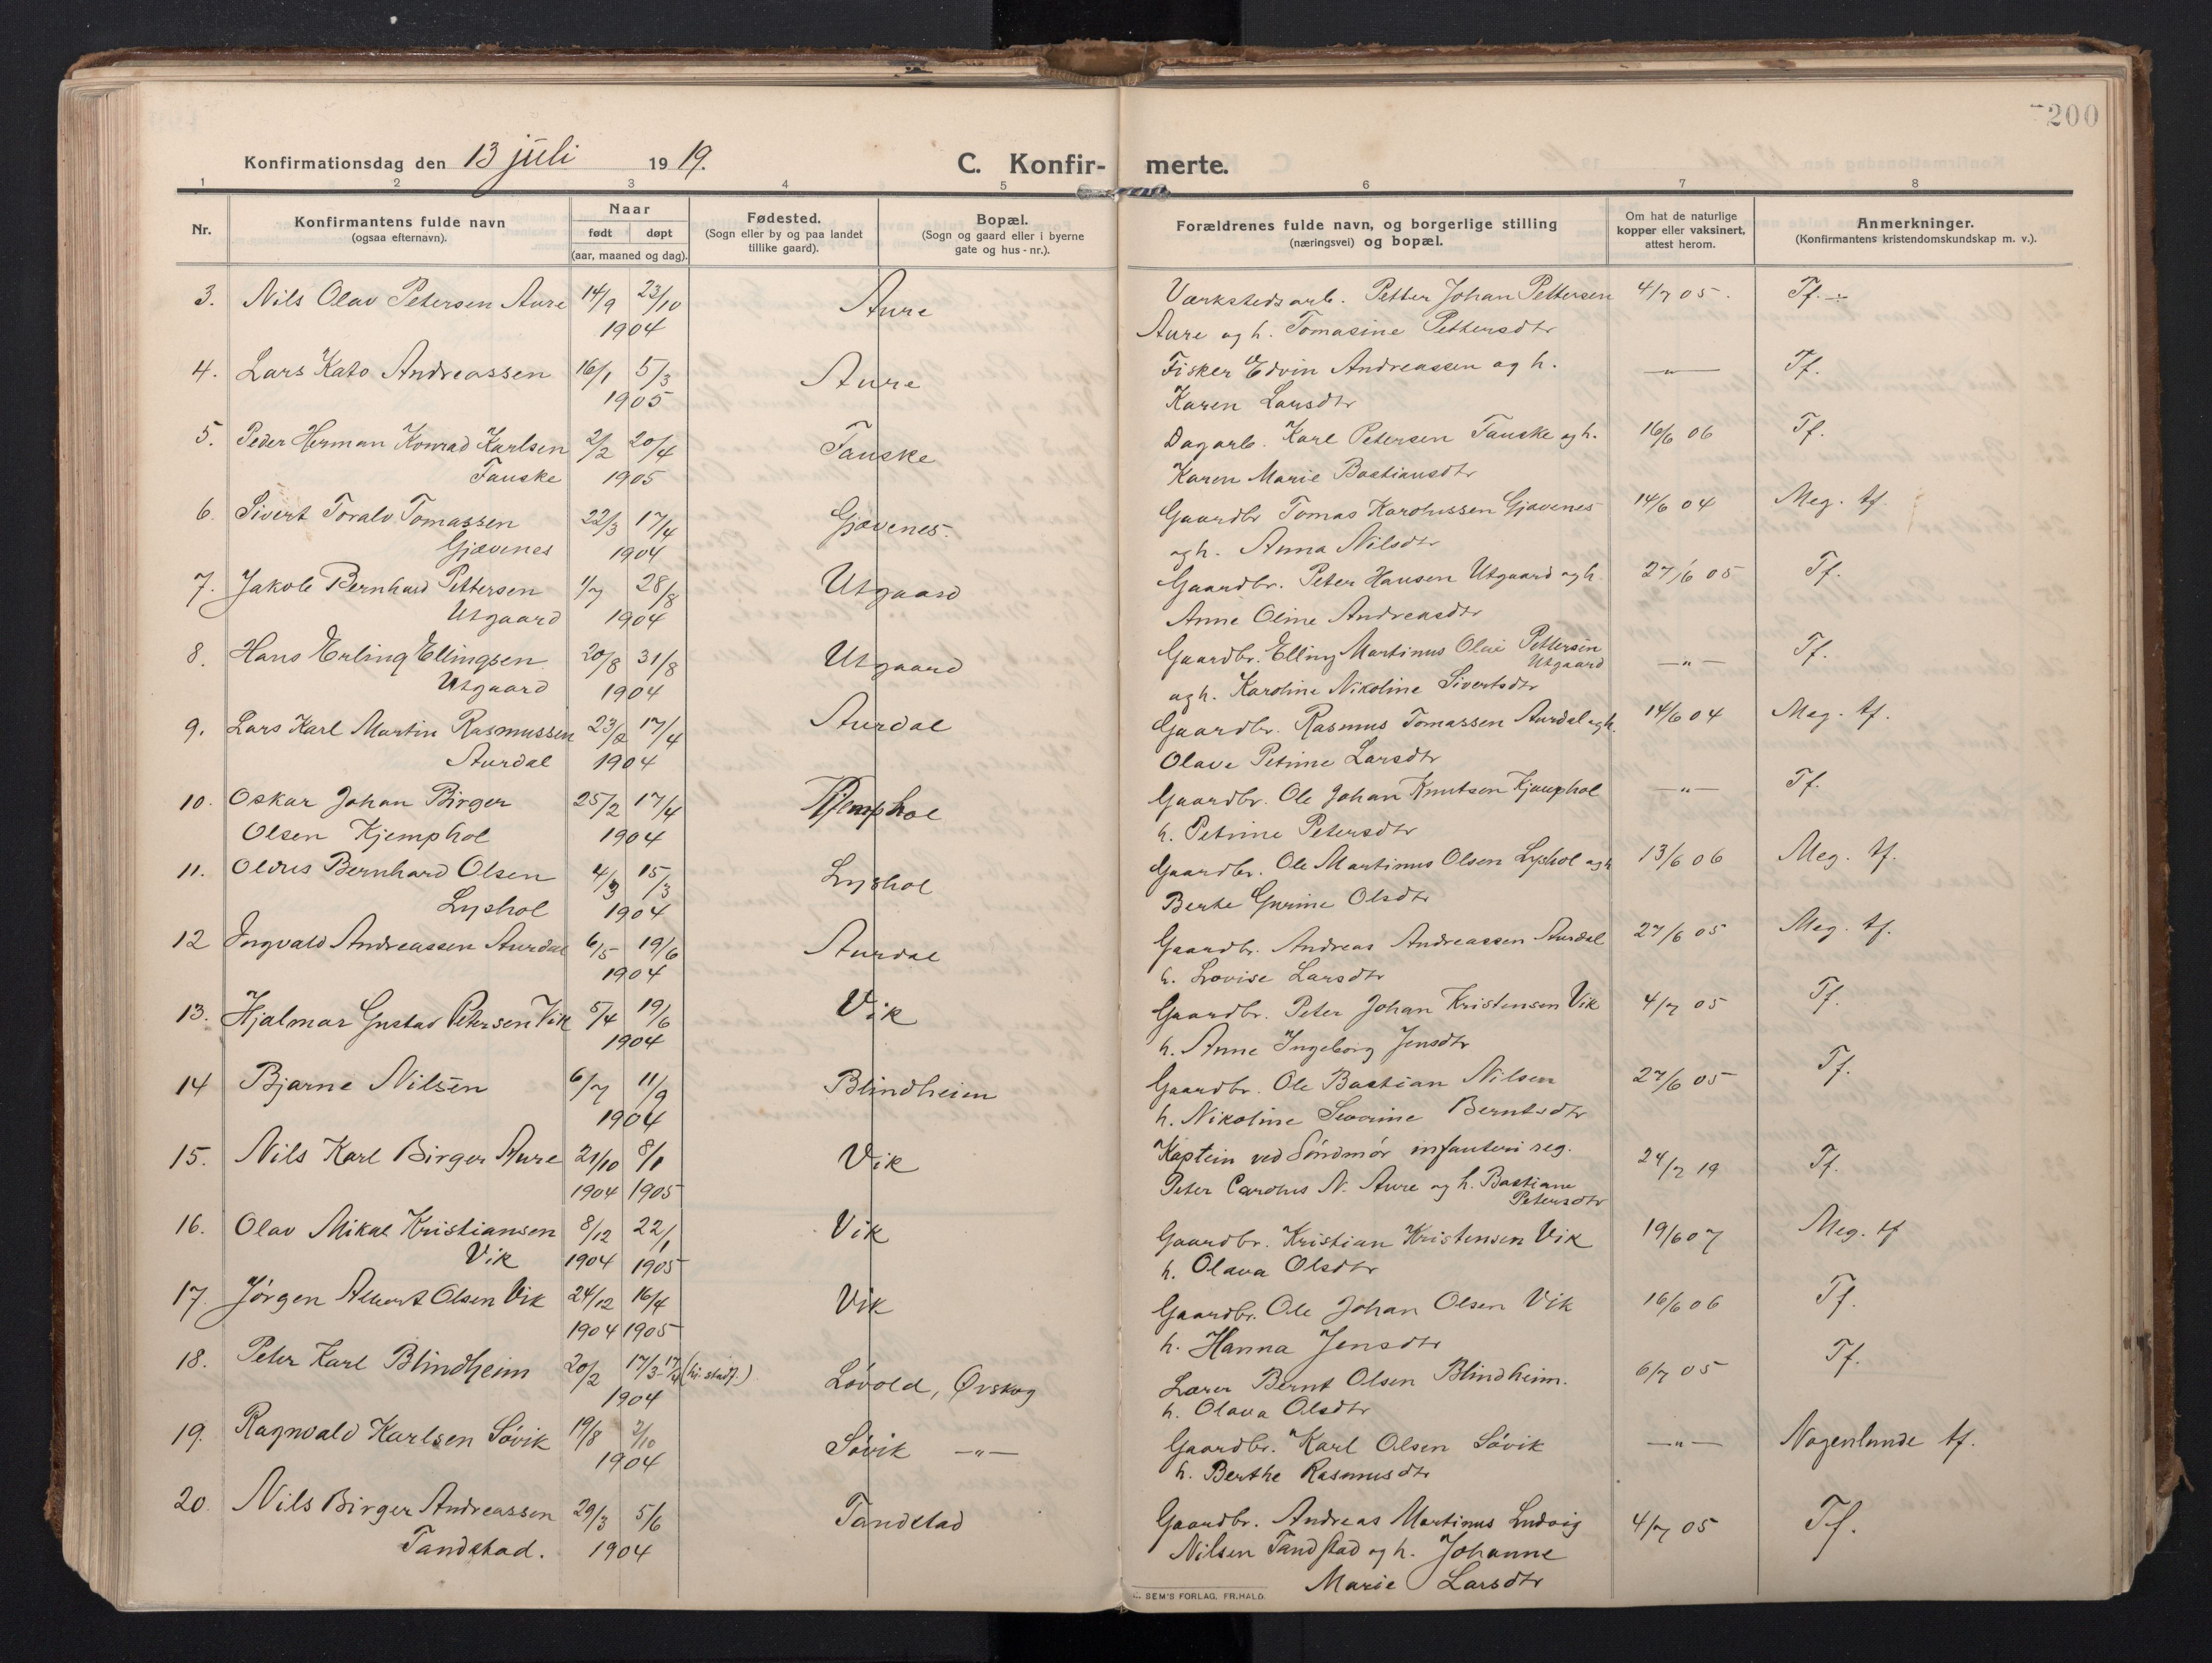 200
Konfirmationsdag den 13 juli 1919.
C. Konfir- merte.
1 2 3 4 5 6 7 8
Nr.
Konfirmantens fulde navn
(ogsaa efternavn).
Naar
født døpt
(aar, maaned og dag).
Fødested.
(Sogn eller by og paa landet
tillike gaard).
Bopæl.
(Sogn og gaard eller i byerne
gate og hus-nr.).
Forældrenes fulde navn, og borgerlige stilling
(næringsvei) og bopæl.
Om hat de naturlige
kopper eller vaksinert,
attest herom.
Anmerkninger.
(Konfirmantens kristendomskundskap m. v.).
3. Nils Olav Petersen Aure 14/9 23/10 Aure Værkstedsarb. Petter Johan Pettersen 4/7 05. Tf.
1904 Aure og h. Tomasine Pettersdtr
4. Lars Kato Andreassen 16/1 5/3 Aure Fisker Edvin Andreassen og h. —"— Tf.
1905 Karen Larsdtr
5. Peder Herman Konrad Karlsen 2/2 20/4 Fauske Dagarb. Karl Petersen Fauske og h. 16/6 06 Tf.
Fauske 1905 Karen Marie Bastiansdtr
6. Sivert Toralv Tomassen 22/3 17/4 Gjævenes. Gaardbr Tomas Karolussen Gjævenes 14/6 04 Meg. tf.
Gjævenes 1904 og h. Anna Nilsdtr
7. Jakob Bernhard Pettersen 1/7 28/8 Utgaard Gaardbr. Peter Hansen Utgaard og h. 27/6 05 Tf.
Utgaard 1904 Anne Oline Andreasdtr
8. Hans Erling Ellingsen 20/8 31/8 Utgaard Gaardbr. Elling Martinus Olai Pettersen —"— Tf.
Utgaard
Utgaard 1904 og h. Karoline Nikoline Sivertsdtr
9. Lars Karl Martin Rasmussen 23/2 17/4 Aurdal Gaardbr. Rasmus Tomassen Aurdal og h. 14/6 04 Meg. tf.
Aurdal 1904 Olave Petrine Larsdtr
10. Oskar Johan Birger 25/2 17/4 Kjemphol Gaardbr. Ole Johan Knutsen Kjemphol —"— Tf.
Olsen Kjemphol 1904 h. Petrine Petersdtr
11. Oldus Bernhard Olsen 4/3 15/3 Lyshol Gaardbr. Ole Martinus Olsen Lyshol og h 13/6 06 Meg. tf.
Lyshol 1904 Berte Gurine Olsdtr
12 Ingvald Andreassen Aurdal 6/5 19/6 Aurdal Gaardbr. Andreas Andreassen Aurdal 27/6 05 Meg. tf.
1904 h. Lovise Larsdtr
13. Hjalmar Gustav Petersen Vik 5/4 19/6 Vik Gaardbr. Peter Johan Kristensen Vik 4/7 05 Tf.
1904 h. Anne Ingeborg Jensdtr
14 Bjarne Nilsen 6/7 11/9 Blindheim Gaardbr. Ole Bastian Nilsen 27/6 05 Tf.
1904 h. Nikoline Severine Berntsdtr
15. Nils Karl Birger Aure 21/10 8/1 Vik Kaptein ved Søndmør infanteri reg. 24/7 19 Tf.
1904 1905 Peter Carolus N. Aure og h. Bastiane
Petersdtr
16. Olav Mikal Kristiansen 8/12 22/1 Vik Gaardbr. Kristian Kristensen Vik 19/6 07 Meg. tf
Vik 1904 1905 h. Olava Olsdtr
17. Jørgen Albert Olsen Vik 24/12 16/4 Vik Gaardbr. Ole Johan Olsen Vik 16/6 06 Tf.
1904 1905 h. Hanna Jensdtr
18. Peter Karl Blindheim 20/2 17/3-17/4 (hi. stadf.) Løvold, Ørskog Lærer Bernt Olsen Blindheim. 6/7 05 Tf.
1904 h. Olava Olsdtr
19. Ragnvald Karlsen Søvik 19/8 2/10 Søvik —"— Gaardbr. Karl Olsen Søvik —"— Nogenlunde tf.
1904 h. Berthe Rasmusdtr
20. Nils Birger Andreassen 29/3 5/6 Tandstad Gaardbr. Andreas Martinus Ludvig 4/7 05 Tf.
Tandstad. 1904 Nilsen Tandstad og h. Johanne
Marie Larsdtr
SEM'S FORLAG, FR.HALD.